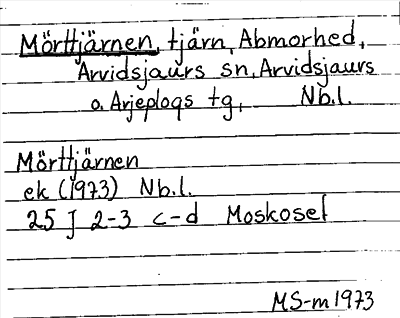 Mörttjärnen, tjärn, Abmorhed,
Arvidsjaurs sn, Arvidsjaurs
o. Arjeplogs tg, Nb.l.
Mörttjärnen
ek (1973) Nb.l.
25 J 2-3 c-d Moskosel
MS-m 1973